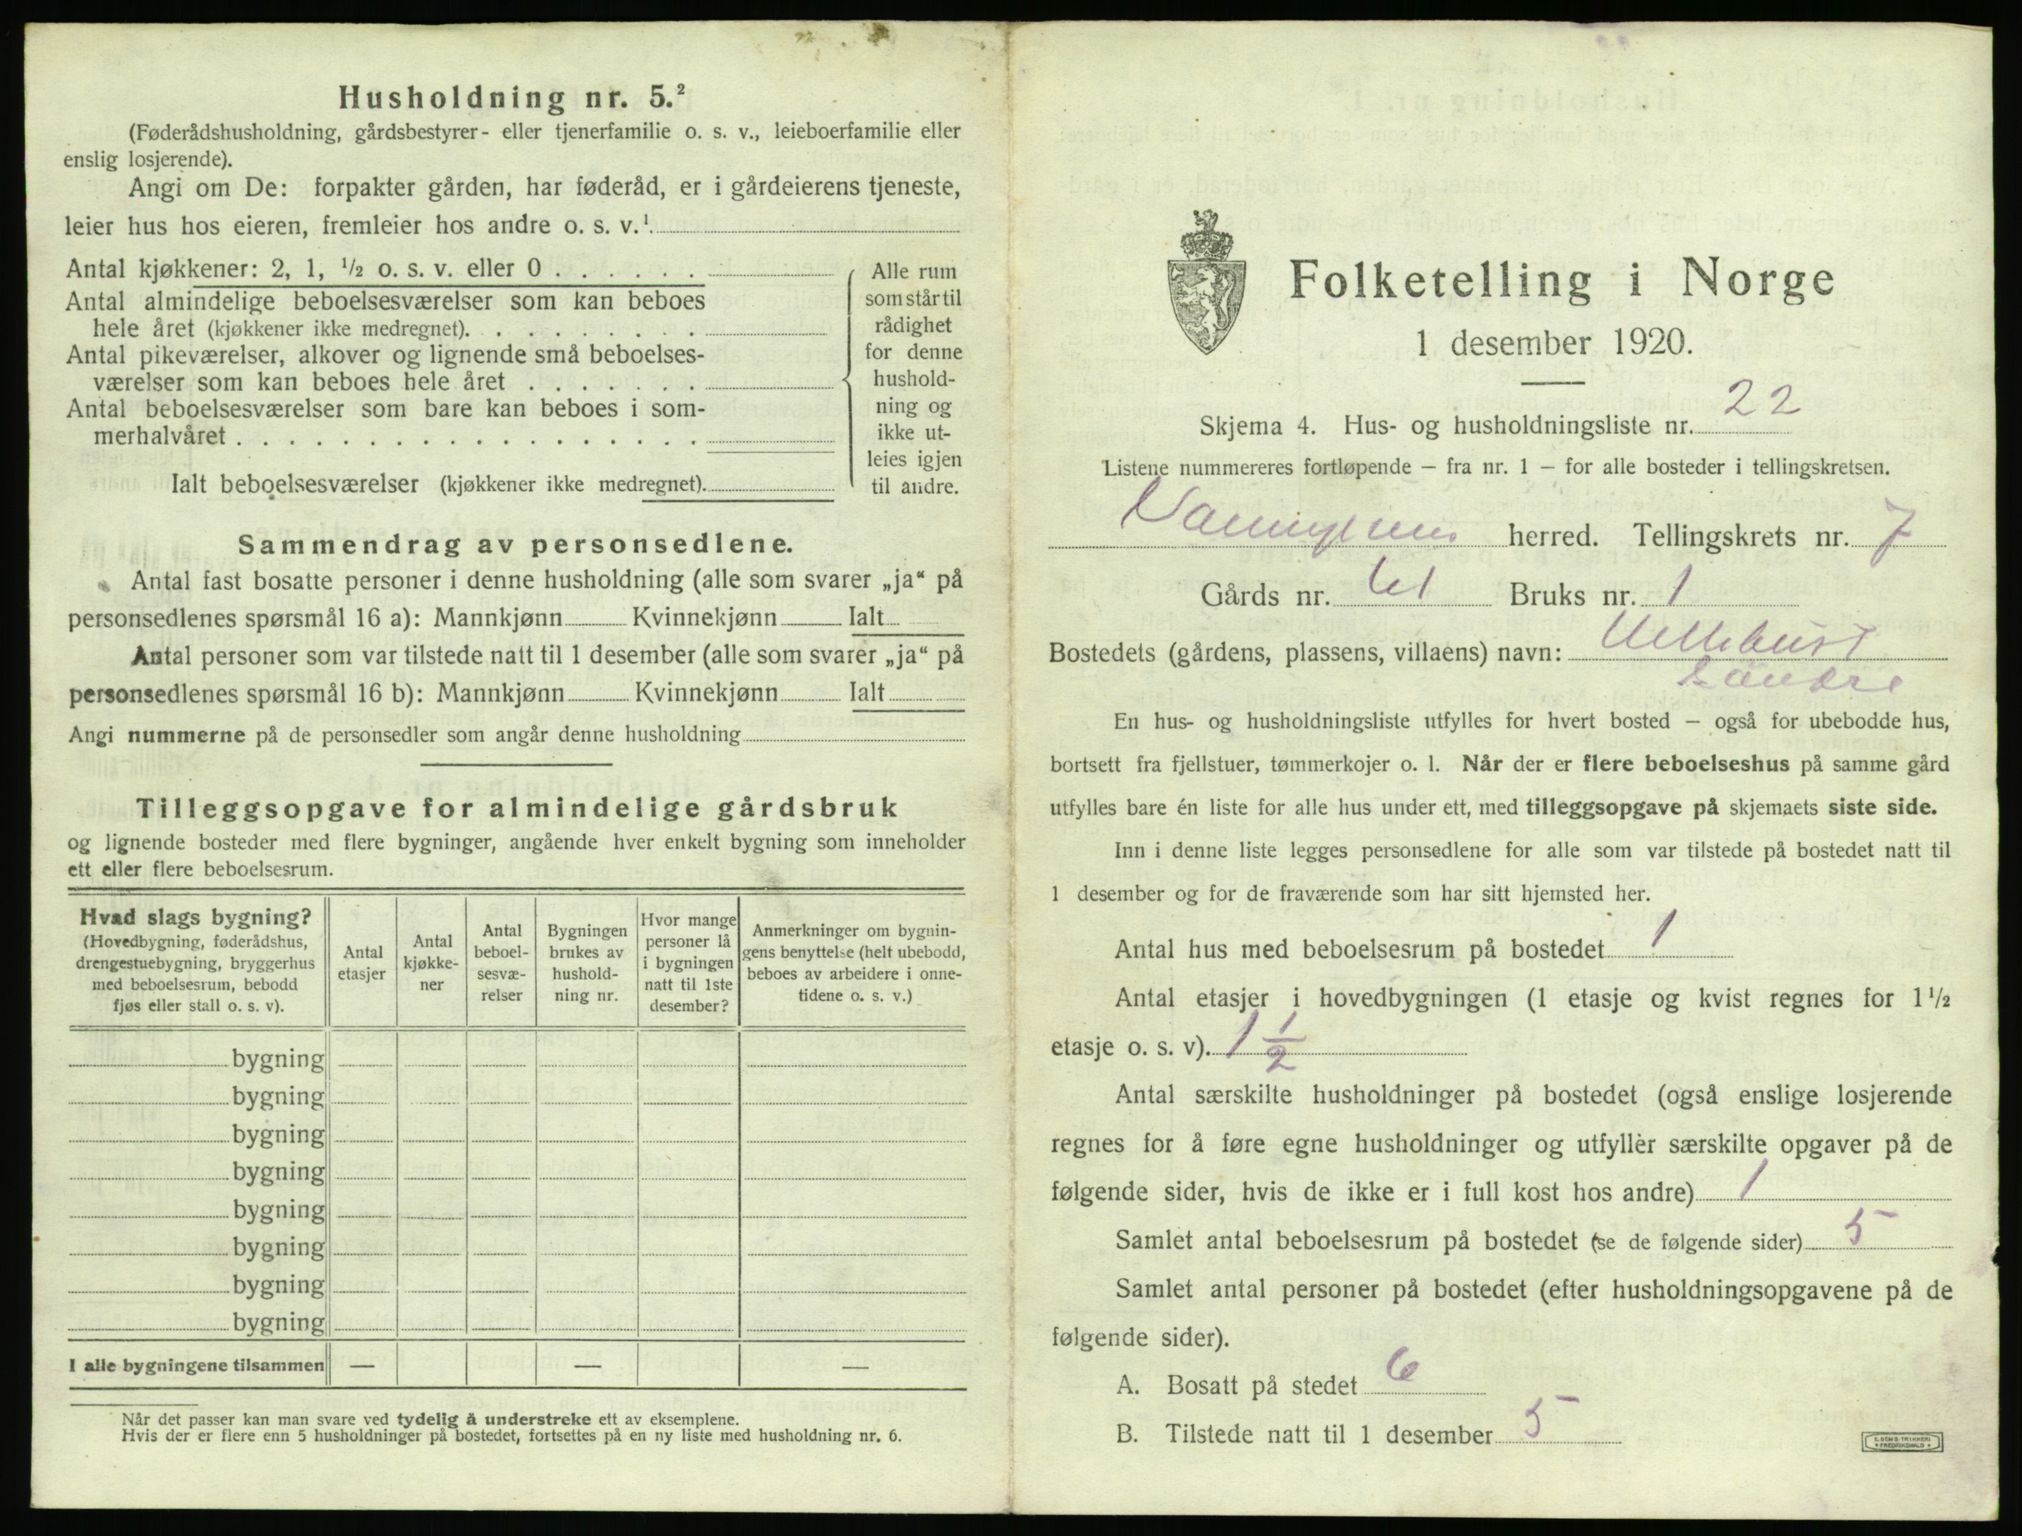 Husholdning nr. 5.²
(Føderådshusholdning, gårdsbestyrer- eller tjenerfamilie o. s. v., leieboerfamilie eller
enslig losjerende).
Angi om De: forpakter gården, har føderåd, er i gårdeierens tjeneste,
leier hus hos eieren, fremleier hos andre o. s. v.¹
Antal kjøkkener: 2, 1, ½ o. s. v. eller 0 . . . . . .
Antal almindelige beboelsesværelser som kan beboes
hele året (kjøkkener ikke medregnet). . . . . . . . .
Antal pikeværelser, alkover og lignende små beboelses-
værelser som kan beboes hele året . . . . . . .
Antal beboelsesværelser som bare kan beboes i som-
merhalvåret . . . . . . . . . . . . . . . . . .
Ialt beboelsesværelser (kjøkkener ikke medregnet).
Alle rum
som står til
rådighet
for denne
hushold-
ning og
ikke ut-
leies igjen
til andre.
Sammendrag av personsedlene.
Antal fast bosatte personer i denne husholdning (alle som svarer „ja“ på
personsedlenes spørsmål 16 a): Mannkjønn Kvinnekjønn Ialt
Antal personer som var tilstede natt til 1 desember (alle som svarer „ja“ på
personsedlenes spørsmål 16 b): Mannkjønn Kvinnekjønn Ialt
Angi nummerne på de personsedler som angår denne husholdning
Tilleggsopgave for almindelige gårdsbruk
og lignende bosteder med flere bygninger, angående hver enkelt bygning som inneholder
ett eller flere beboelsesrum.
Hvad slags bygning?
(Hovedbygning, føderådshus,
drengestuebygning, bryggerhus
med beboelsesrum, bebodd
fjøs eller stall o. s. v).
Antal
etasjer
Antal
kjøkke-
ner
Antal
beboel-
sesvæ-
relser
Bygningen
brukes av
hushold-
ning nr.
Hvor mange
personer lå
i bygningen
natt til 1ste
desember?
Anmerkninger om bygnin-
gens benyttelse (helt ubebodd,
beboes av arbeidere i onne-
tidene o. s. v.)
bygning
bygning
bygning
bygning
bygning
bygning
bygning
bygning
I alle bygningene tilsammen — — —
Når det passer kan man svare ved tydelig å understreke ett av eksemplene.
Hvis der er flere enn 5 husholdninger på bostedet, fortsettes på en ny liste med husholdning nr. 6.
Folketelling i Norge
1 desember 1920.
Skjema 4. Hus- og husholdningsliste nr. 22
Listene nummereres fortløpende – fra nr. 1 – for alle bosteder i tellingskretsen.
herred. Tellingskrets nr. 7
Gårds nr. 61 Bruks nr. 1
Bostedets (gårdens, plassens, villaens) navn:
En hus- og husholdningsliste utfylles for hvert bosted – også for ubebodde hus,
bortsett fra fjellstuer, tømmerkojer o. l. Når der er flere beboelseshus på samme gård
utfylles bare én liste for alle hus under ett, med tilleggsopgave på skjemaets siste side.
Inn i denne liste legges personsedlene for alle som var tilstede på bostedet natt til
1 desember og for de fraværende som har sitt hjemsted her.
Antal hus med beboelsesrum på bostedet 1
Antal etasjer i hovedbygningen (1 etasje og kvist regnes for 1 ½
etasje o. s. v). 1 ½
Antal særskilte husholdninger på bostedet (også enslige losjerende
regnes for å føre egne husholdninger og utfyller særskilte opgaver på de
følgende sider, hvis de ikke er i full kost hos andre) 1
Samlet antal beboelsesrum på bostedet (se de følgende sider) 5
Samlet antal personer på bostedet (efter husholdningsopgavene på de
følgende sider).
A. Bosatt på stedet 6
B. Tilstede natt til 1 desember 5